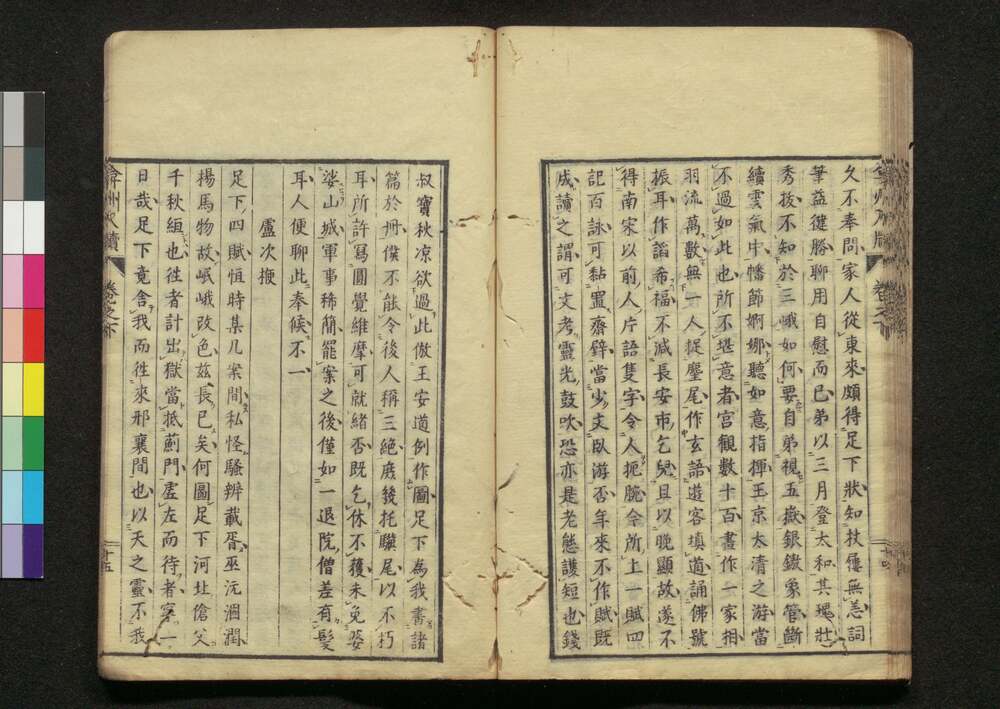 久不奉問家人從東來頗得足下狀知杖屨無恙詞
筆益健勝聊用自慰而已弟以三月登太和其瑰壯
秀拔不知於三峨如何要自弟視五嶽銀鏤象管斷
續雲氣中幡節婀娜聽如意指揮玉京太清之游當
不過如此也所不堪意者宮観數十百盡作一家相
羽流萬數無一人捉麈尾作玄語遊客填道誦佛號
振耳作謟希福不減長安市乞兒且以晚顯故遂不
得南宋以前人片語隻字令人扼腕今所上一賦四
記百詠可黏置齋壁當少文臥游否年來不作賦既
成讀之謂可文考靈光鼓吹恐亦是老態護短也錢
叔寶秋凉欲過此倣王安道例作圖足下為我書諸
篇於冊僕不能令後人稱三絕庶幾托驥尾以不朽
耳所許寫圓覺維摩可就緒否既乞休不獲未免婆
娑山城軍事稀簡罷案之後僅如一退院僧差有髮
耳人便聊此奉候不一
盧次楩
足下四賦恒時集几案間私怪騷辨載胥巫沅涸潤
楊馬物故岷峨改色茲長已矣何圖足下河北傖父
千秋縆也徃者計出獄當抵薊門虗左而待者穿一
日哉足下竟舍我而徃來邢襄間也以天之靈不我
弇州尺牘
卷之下
十五
卷之下
十四